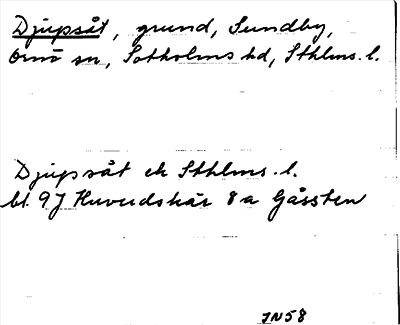 Djupsåt, grund, Sundby,
Ornö sn, Sotholms hd, Sthlms. l.
Djupsåt ek Sthlms. l.
bl. 9J Huvudskär 8 a Gåssten
JN58